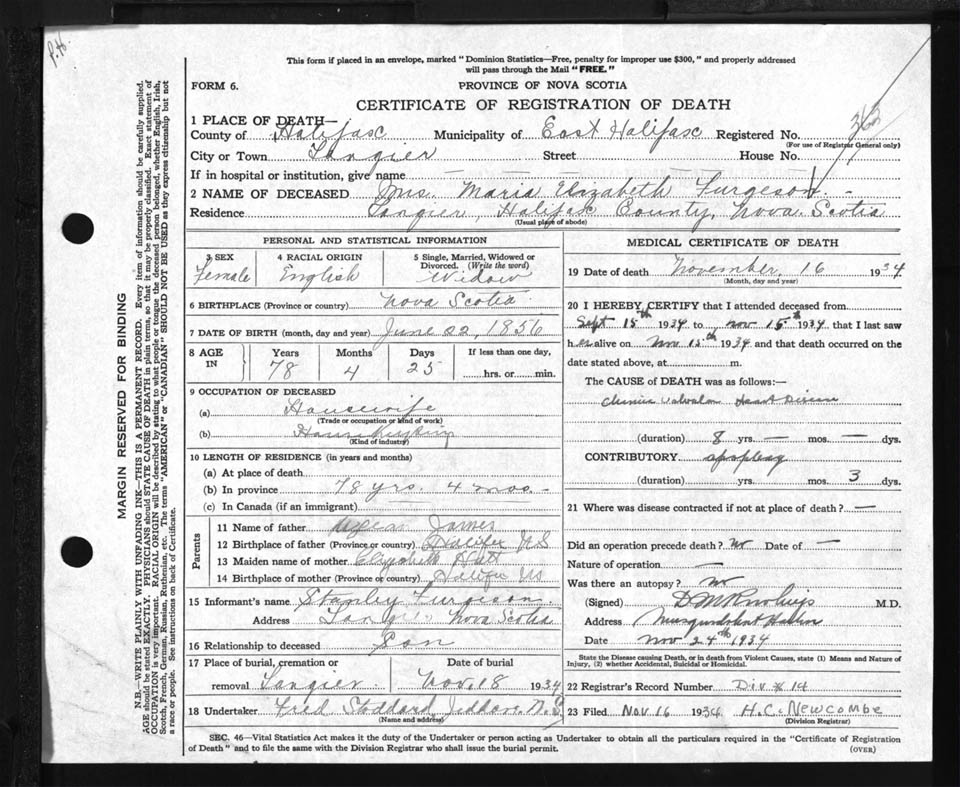 P.H.
This form if placed in an envelope, marked "Dominion Statistics—Free, penalty for improper use $300," and properly addressed
will pass through the Mail "FREE."
FORM 6.
PROVINCE OF NOVA SCOTIA
CERTIFICATE OF REGISTRATION OF DEATH
1 PLACE OF DEATH—
County of Halifax Municipality of East Halifax Registered No.
(For use of Registrar General only)
City or Town Tangier Street House No.
If in hospital or institution, give name
2 NAME OF DECEASED Mrs. Maria Elizabeth Furgeson
Residence Tangier, Halifax County, Nova Scotia
(Usual place of abode)
PERSONAL AND STATISTICAL INFORMATION
3 SEX Female
4 RACIAL ORIGIN English
5 Single, Married, Widowed or Divorced. (Write the word) Widow
6 BIRTHPLACE (Province or country) Nova Scotia
7 DATE OF BIRTH (month, day and year) June 22, 1856
8 AGE IN Years 78 Months 4 Days 25 If less than one day, hrs. or min.
9 OCCUPATION OF DECEASED
(a) Housewife
(Trade or occupation or kind of work)
(b) Housekeeping
(Kind of industry)
10 LENGTH OF RESIDENCE (in years and months)
(a) At place of death
(b) In province 78 yrs. 4 mos. -
(c) In Canada (if an immigrant)
Parents
11 Name of father James
12 Birthplace of father (Province or country) Halifax N S
13 Maiden name of mother Elizabeth
14 Birthplace of mother (Province or country) Halifax NS
15 Informant's name Stanley Furgeson
Address Tangier Nova Scotia
16 Relationship to deceased Son
17 Place of burial, cremation or removal Tangier Date of burial Nov. 18 1934
18 Undertaker Fred Stoddard Jeddore N.S
(Name and address)
MEDICAL CERTIFICATE OF DEATH
19 Date of death November, 16 1934
(Month, day and year)
20 I HEREBY CERTIFY that I attended deceased from
Sept 15th 1934 to Nov 15th 1934 that I last saw
her alive on Nov 15th 1934 and that death occurred on the
date stated above, at m.
The CAUSE of DEATH was as follows:
Chronic Valvular Heart Disease
(duration) 8 yrs. — mos. — dys.
CONTRIBUTORY apoplexy
(duration) yrs. mos. 3 dys.
21 Where was disease contracted if not at place of death? —
Did an operation precede death? no Date of —
Nature of operation —
Was there an autopsy? no
(Signed) M.D.
Address Musquodoboit Harbor
Date Nov 24th 1934
State the Disease causing Death, or in death from Violent Causes, state (1) Means and Nature of
Injury, (2) whether Accidental, Suicidal or Homicidal.
22 Registrar's Record Number Div # 14
23 Filed Nov 16 1934 H.C. Newcombe
(Division Registrar)
SEC. 46—Vital Statistics Act makes it duty of the Undertaker or person acting as Undertaker to obtain all the particulars required in the "Certificate of Registration
of Death" and to file the same with the Division Registrar who shall issue the burial permit.
(OVER)
MARGIN RESERVED FOR BINDING
N.B.—WRITE PLAINLY WITH UNFADING INK—THIS IS A PERMANENT RECORD. Every item of information should be carefully supplied.
AGE should be stated EXACTLY. PHYSICIANS should STATE CAUSE OF DEATH in plain terms, so that it may be properly classified. Exact statement of
OCCUPATION is very important. RACIAL ORIGIN will be described by stating to what people or tongue the deceased person belonged, whether English, Irish,
Scotch, French, German, Russian, Ruthenian, etc. The terms "AMERICAN" or "CANADIAN" SHOULD NOT BE USED as they express citizenship but not
a race or people. See instructions on back of Certificate.